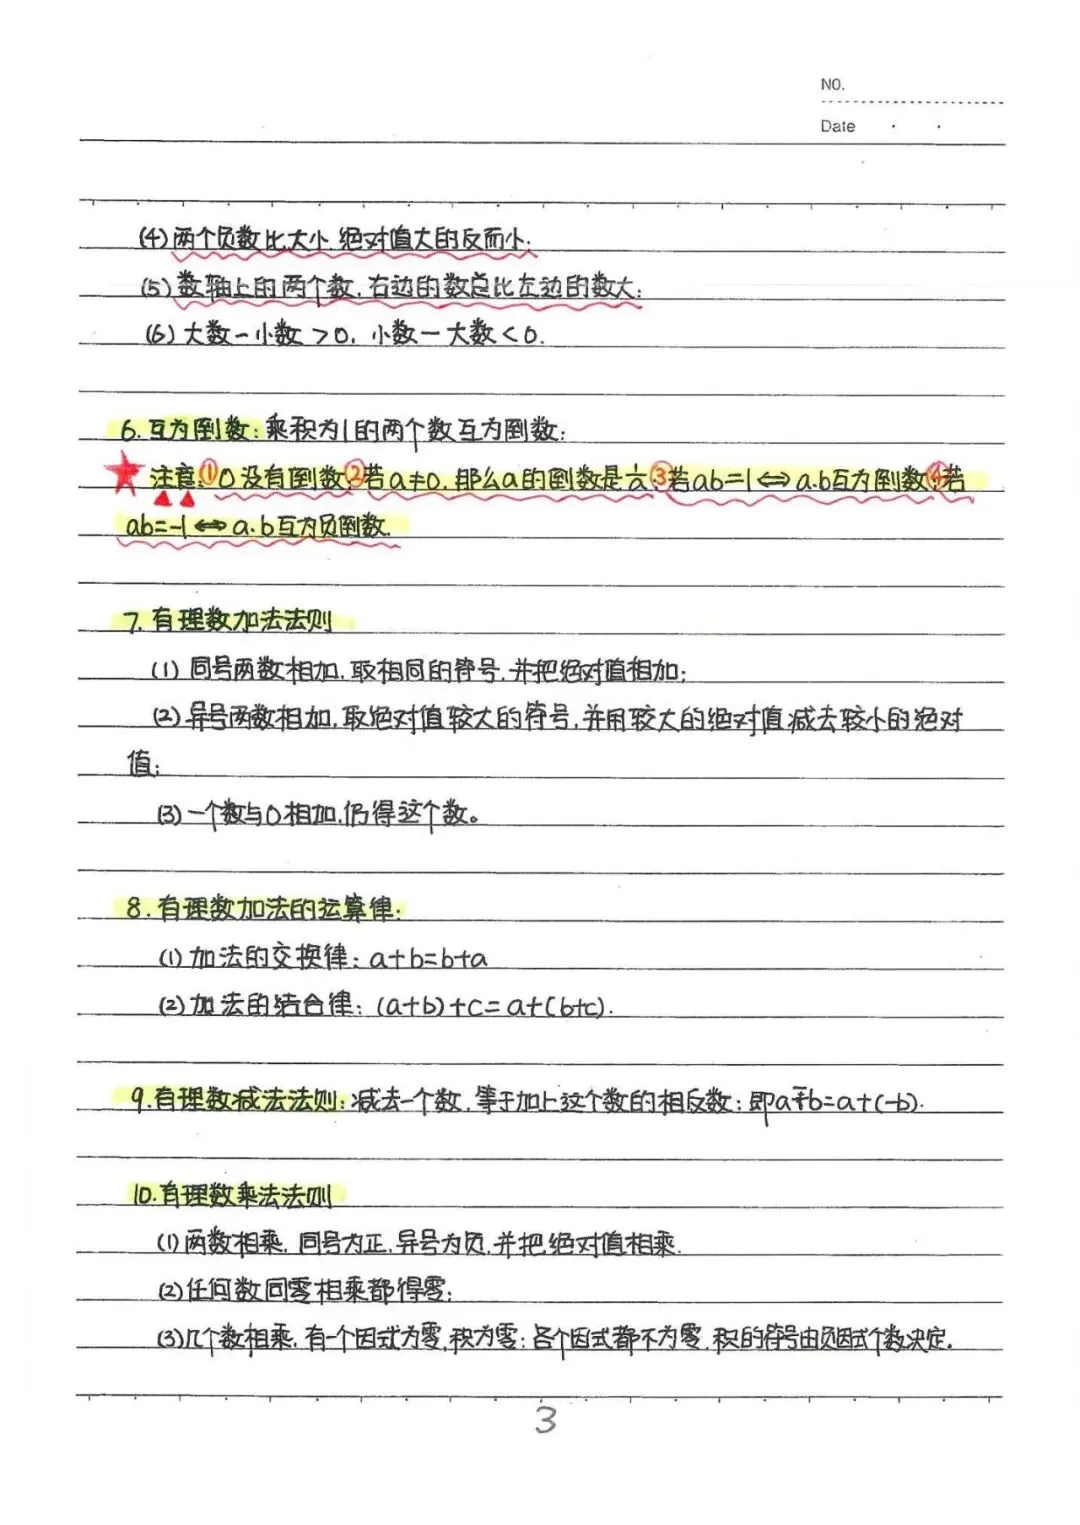 NO.
Date
(4)两个负数比大小,绝对值大的反而小;
(5)数轴上的两个数,右边的数总比左边的数大;
(6)大数-小数>0,小数-大数<0.
6.互为倒数:乘积为1的两个数互为倒数;
注意:①0没有倒数②若a≠0,那么a的倒数是1/a;③若ab=1⇔a.b互为倒数;④若
ab=-1⇔a.b互为负倒数.
7.有理数加法法则
(1)同号两数相加,取相同的符号,并把绝对值相加;
(2)异号两数相加,取绝对值较大的符号,并用较大的绝对值减去较小的绝对
值;
(3)一个数与0相加,仍得这个数。
8.有理数加法的运算律:
(1)加法的交换律:a+b=b+a
(2)加法的结合律:(a+b)+c=a+(b+c).
9.有理数减法法则:减去一个数,等于加上这个数的相反数;即a-b=a+(-b).
10.有理数乘法法则
(1)两数相乘,同号为正,异号为负,并把绝对值相乘.
(2)任何数同零相乘都得零;
(3)几个数相乘,有一个因式为零,积为零;各个因式都不为零,积的符号由负因式个数决定.
3